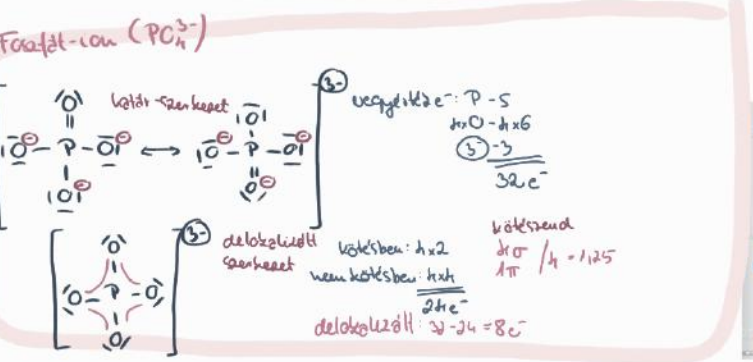 Foszfát-ion (PO₄³⁻)
határ-szerkezet
3-
vegyérték e⁻: P - 5
4xO - 4x6
3- -3
32 e⁻
|O̅⊖ - P - O̅|⊖ ↔ |O̅⊖ - P - O̅|⊖
3-
delokalizált
szerkezet
kötésben: 4x2
nem kötésben: 4x4
24e⁻
delokalizált: 32-24 = 8e⁻
kötésrend
4σ
1π /4 = 1,25